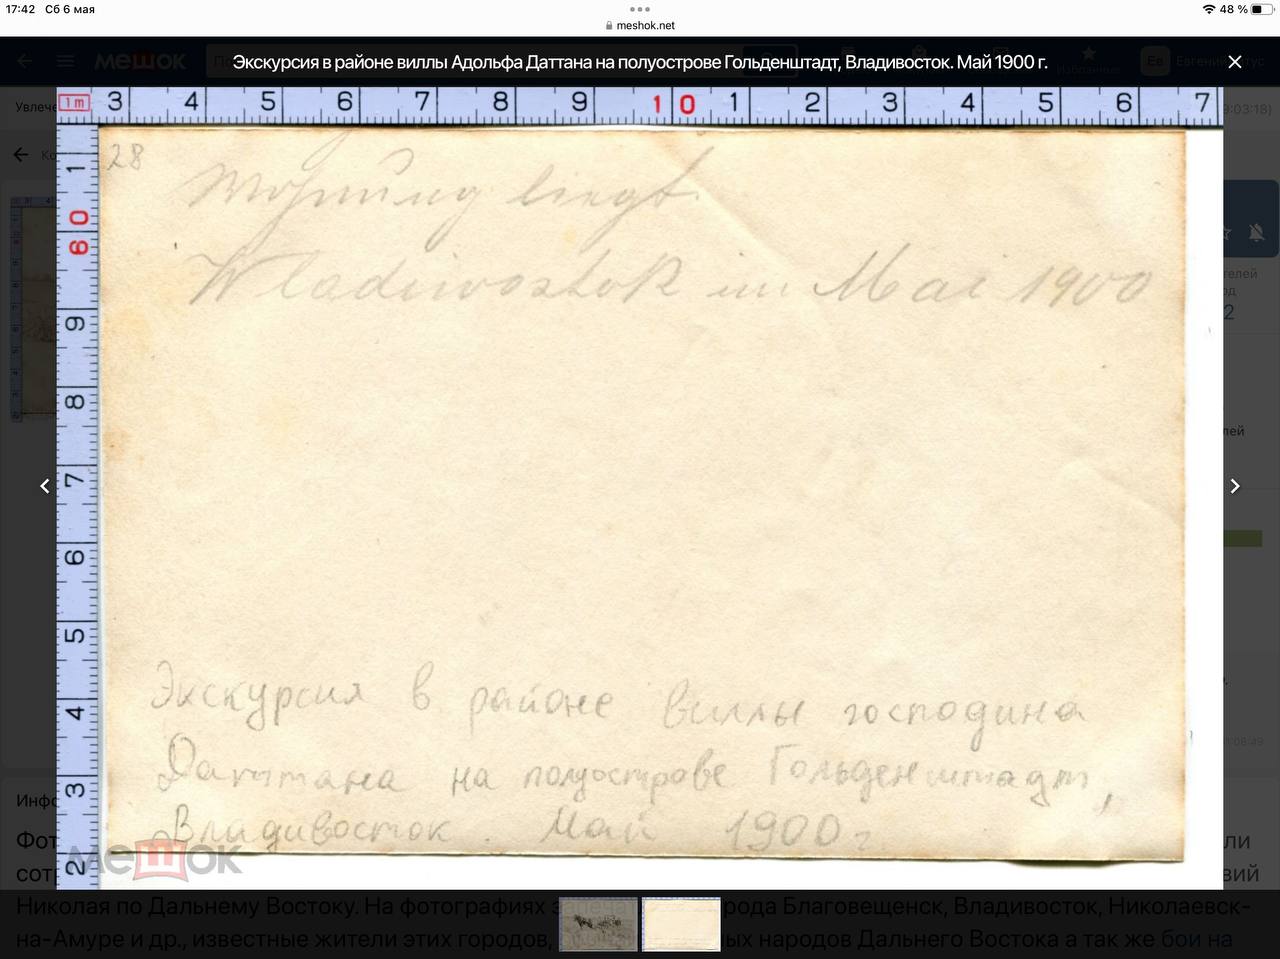 17:42 Сб 6 мая
48 %
meshok.net
Экскурсия в районе виллы Адольфа Даттана на полуострове Гольденштадт, Владивосток. Май 1900 г.
мешок
Увлече
9:03:18)
1m 3 4 5 6 7 8 9 10 1 2 3 4 5 6 7
1
60
9
8
7
6
5
4
3
2
28
Wohnung liegt.
Wladiwostok im Mai 1900
Экскурсия в районе виллы господина
Даттана на полуострове Гольденштадт,
Владивосток. Май 1900 г
мешок
телей
2
лей
Инфо
Фот
ли
сот
вий
Николая по Дальнему Востоку. На фотографиях з рода Благовещенск, Владивосток, Николаевск-
на-Амуре и др., известные жители этих городов, ых народов Дальнего Востока а так же бои на